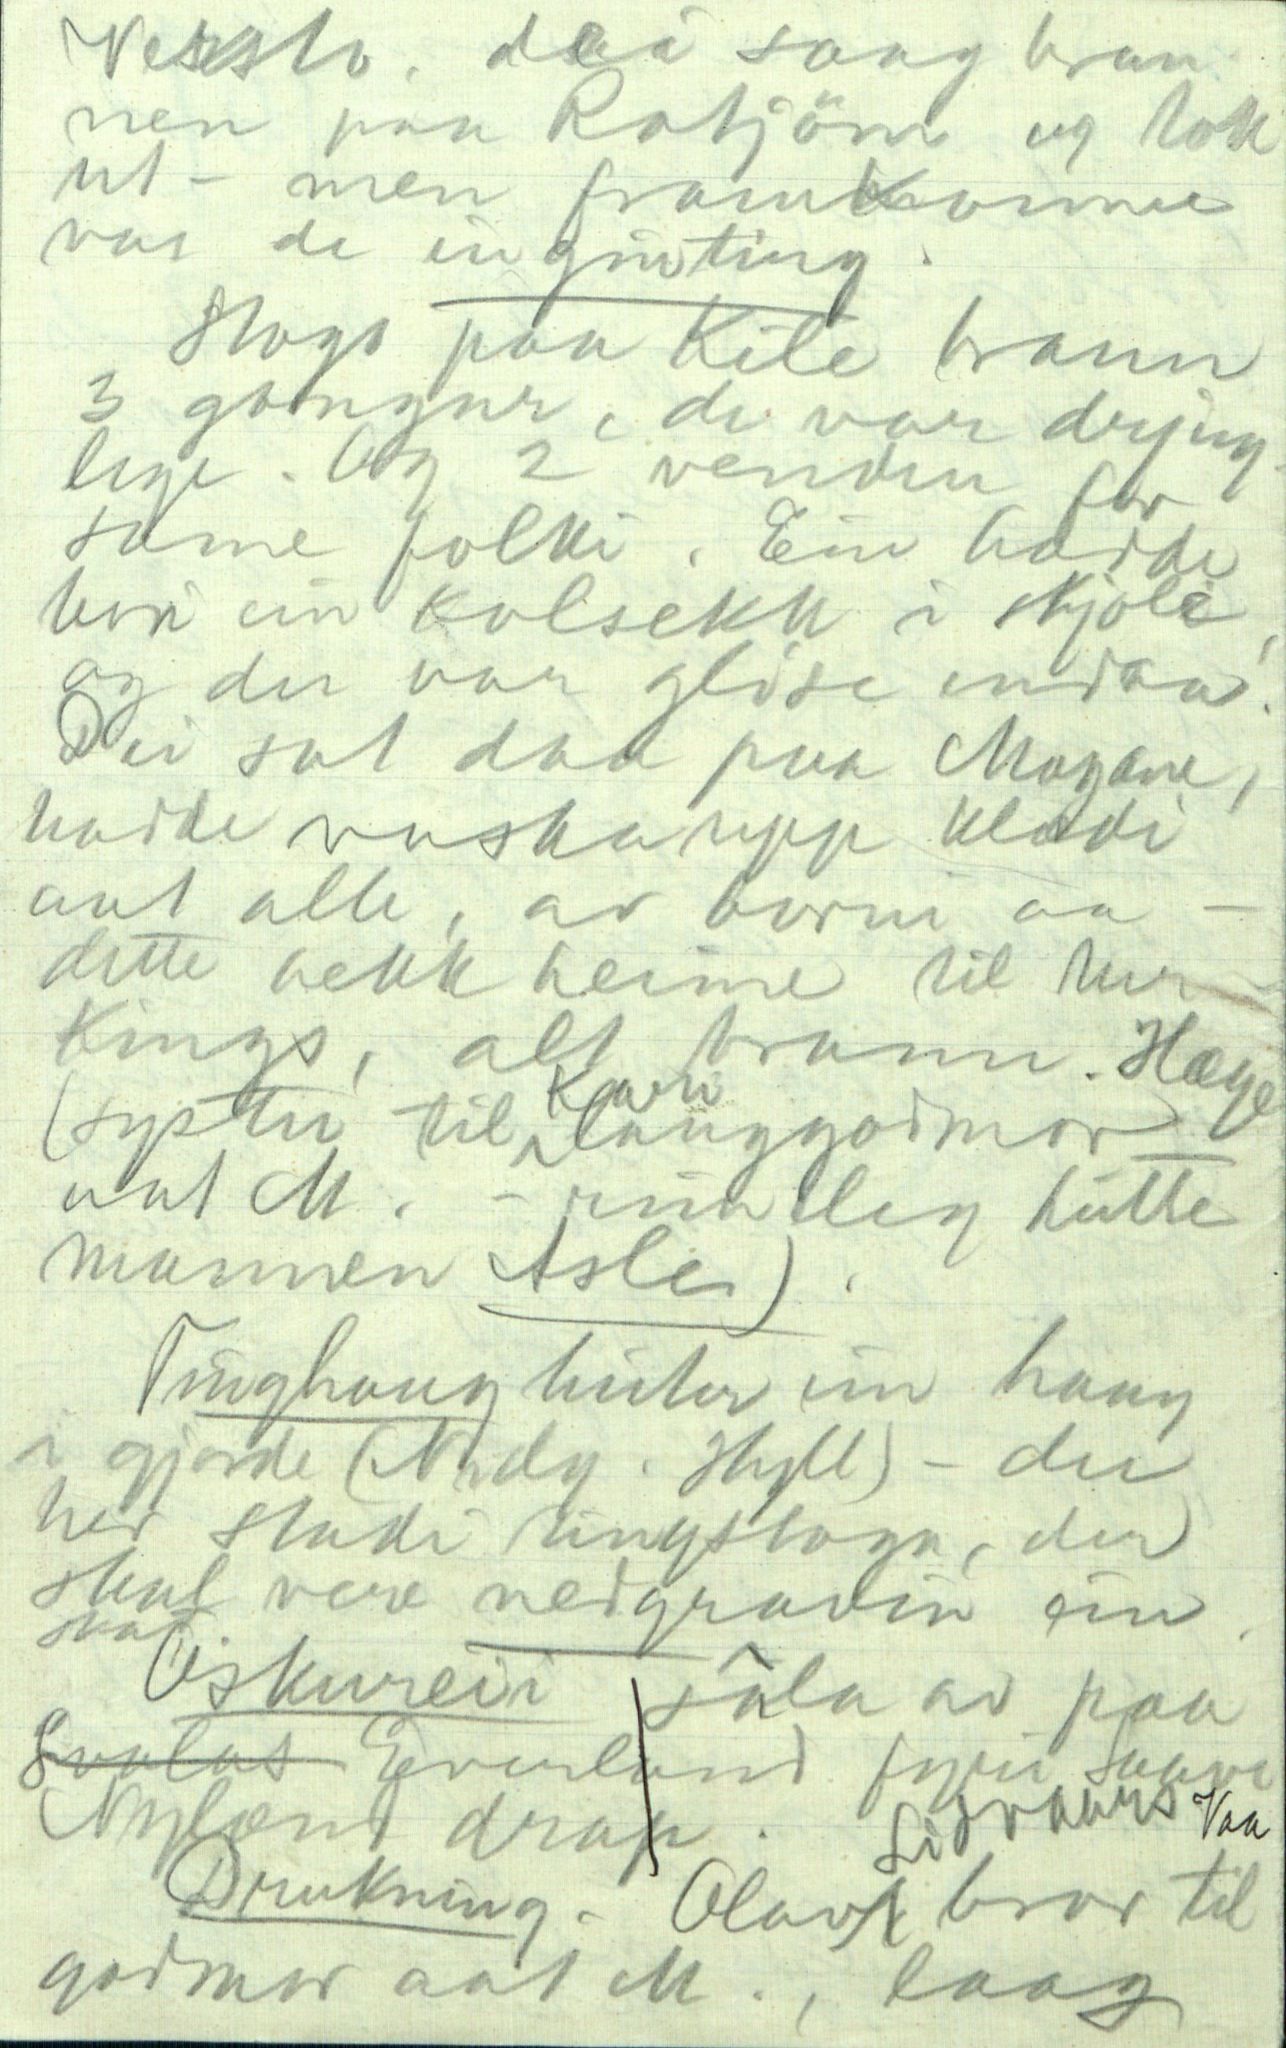 Vessto, dei saag bran-
nen paa Rotjönn og tok
ut – men framkomne
var de ingjinting.
Stogo paa Kile brann
3 gongur, de var dryng-
lege. Og 2 vendur for
same folki. Ein hadde
bori ein kolsekk i skjole,
og der var glöse endaa.
Dei sat daa paa Mogane,
hadde vaska upp kladi
aat alle, av borni aa –
dette hekk heime til tur-
kings, alt brann. Hæge
(syster til Kari langgodmor
aat M. – rundleg heitte
mannen Asle).
Tinghaug heiter ein haug
i gjorde (N. dg. Skjell) – der
her stadi tingstoga, der
skal vere nedgravin ein
skat.
Oskureii sâla av paa
Svalas Everland fyrir Saave
Nylænd drap. Sidraaus Vaa
Drukning. Olav bror til
godmor aat M., laag